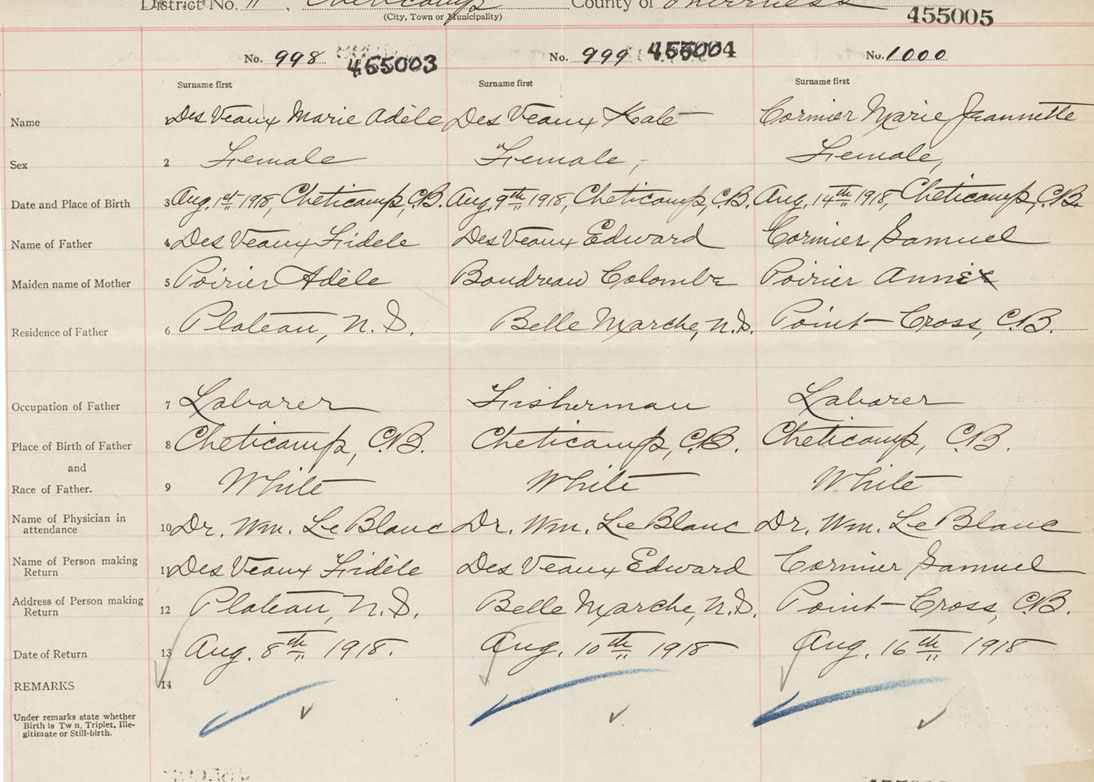 District No. 11, Cheticamp County of Inverness
(City, Town or Municipality)
455005
No. 998 455003 No. 999 455004 No. 1000
Surname first Surname first Surname first
Name 1 Des Veaux Marie Adèle Des Veaux Kate Cormier Marie Jeannette
Sex 2 Female Female, Female,
Date and Place of Birth 3 Aug. 1st 1918, Cheticamp, C.B. Aug. 9th 1918, Cheticamp, C.B. Aug. 14th 1918, Cheticamp, C.B.
Name of Father 4 Des Veaux Fidele Des Veaux Edward Cormier Samuel
Maiden name of Mother 5 Poirier Adèle Boudreau Colombe Poirier Annie
Residence of Father 6 Plateau, N.S. Belle Marche, N.S. Point-Cross, C.B.
Occupation of Father 7 Laborer Fisherman Laborer
Place of Birth of Father 8 Cheticamp, C.B. Cheticamp, C.B. Cheticamp, C.B.
and
Race of Father. 9 White White White
Name of Physician in
attendance 10 Dr. Wm. LeBlanc Dr. Wm. LeBlanc Dr. Wm. LeBlanc
Name of Person making
Return 11 Des Veaux Fidèle Des Veaux Edward Cormier Samuel
Address of Person making
Return 12 Plateau, N.S. Belle Marche, N.S. Point-Cross, C.B.
Date of Return 13 Aug. 8th 1918. Aug. 10th 1918 Aug. 16th 1918
REMARKS 14
Under remarks state whether
Birth is Tw n, Triplet, Ille-
gitimate or Still-birth.